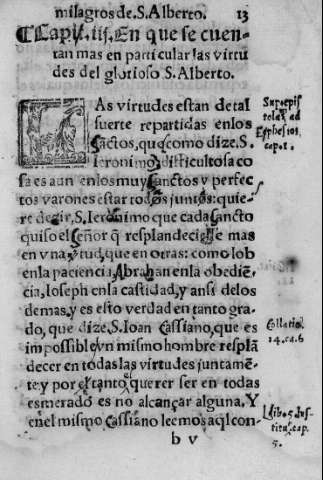 milagros de. S. Alberto. 13
¶ Capit. iij. En que se cuen-
tan mas en particular las virtu
des del glorioso S. Alberto.
LAs virtudes estan de tal
suerte repartidas en los
sanctos, que como dize. S.
Ieronimo, dificultosa co
sa es aun en los muy sanctos y perfec
tos varones estar todos juntos: quie-
re dezir, S. Ieronimo que cada sancto
quiso el señor q̃ resplandeciesse mas
en vna virtud, que en otras: como Iob
en la paciencia, Abrahan en la obediẽ-
cia, Ioseph en la castidad, y ansi de los
demas, y es esto verdad en tanto gra-
do, que dize. S. Ioan Cassiano, que es
impossible vn mismo hombre resplã
decer en todas las virtudes juntamẽ-
te, y por el tanto querer ser en todas
esmerado es no alcançar alguna. Y
en el mismo Cassiano leemos aql con-
b v
Sup. epis
tolã. ad
Ephesios,
cap. 1.
Collatio.
14. ca. 6
Libo. 5. Ins-
titu. cap.
5.